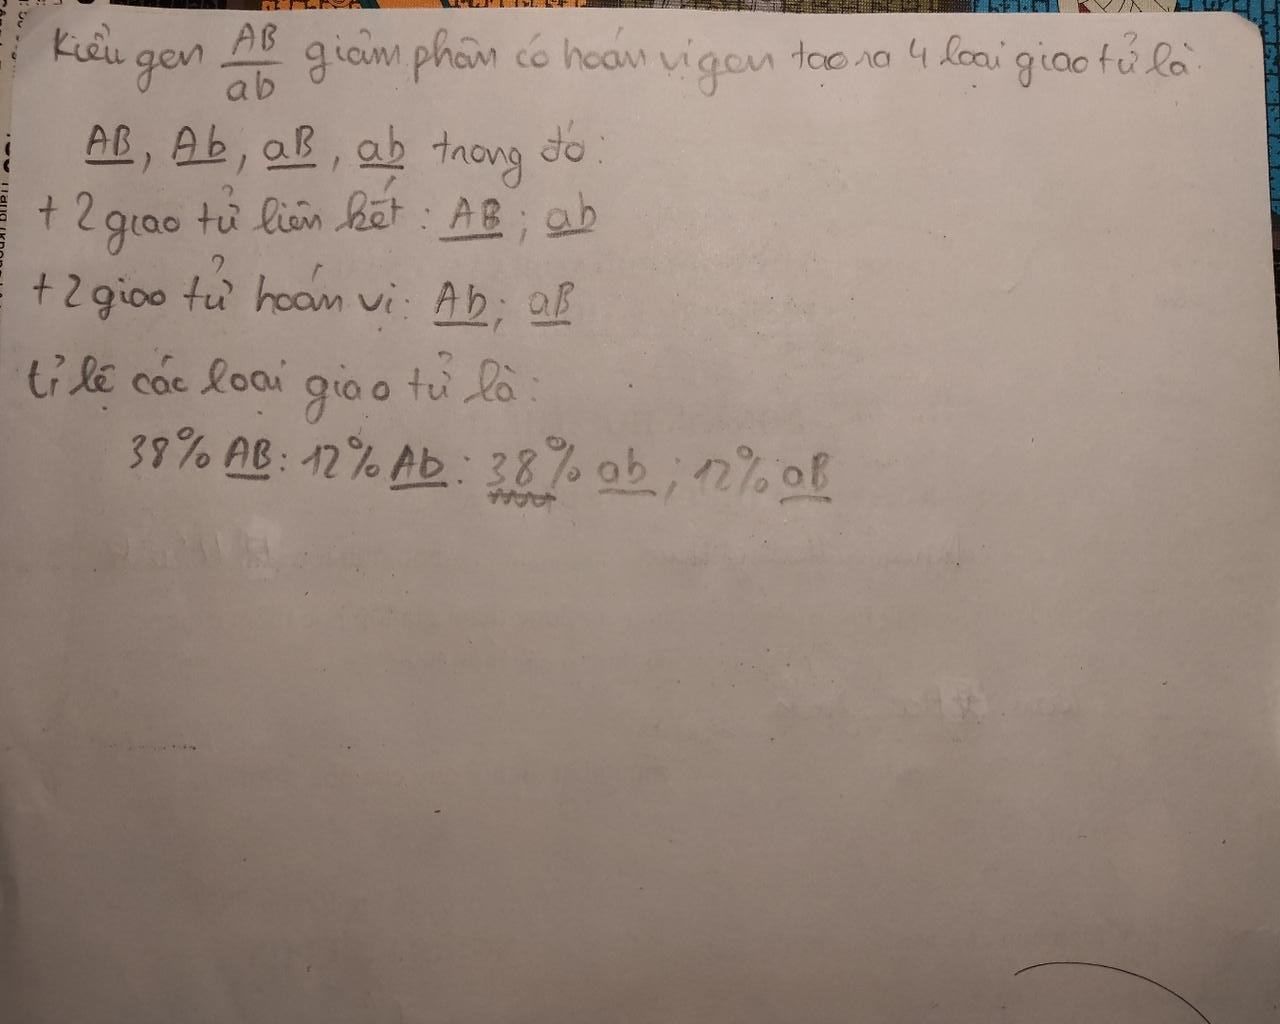 Kiểu gen AB/ab giảm phân có hoán vị gen tạo ra 4 loại giao tử là:
AB, Ab, aB, ab trong đó:
+ 2 giao tử liên kết: AB; ab
+ 2 giao tử hoán vị: Ab; aB
tỉ lệ các loại giao tử là:
38% AB: 12% Ab: 38% ab; 12% aB